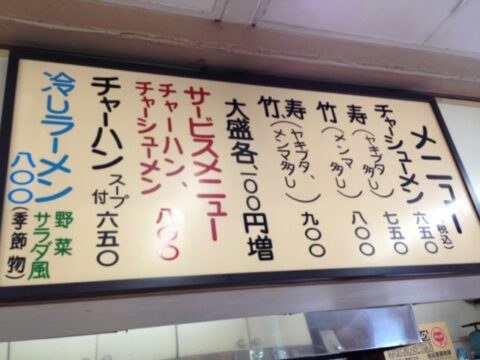 メニュー(税込)
チャーシューメン 六五〇
寿(ヤキブタ多し) 七五〇
竹(メンマ多し) 八〇〇
寿(ヤキブタ、
竹、メンマ多し) 九〇〇
大盛各、一〇〇円増
サービスメニュー
チャーハン、
チャーシューメン 八〇〇
チャーハン スープ付 六五〇
冷しラーメン 野菜
サラダ風
八〇〇(季節物)